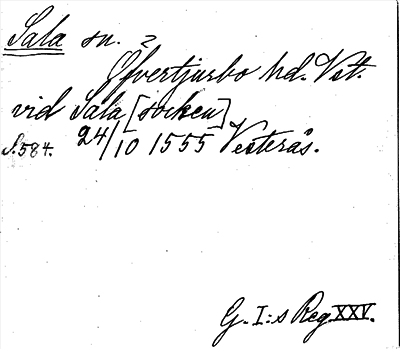 Sala sn. 2
Öfvertjurbo hd. Vst.
vid Sala [socken]
S.584. 24/10 1555 Vesterås.
G. I:s Reg. XXV.